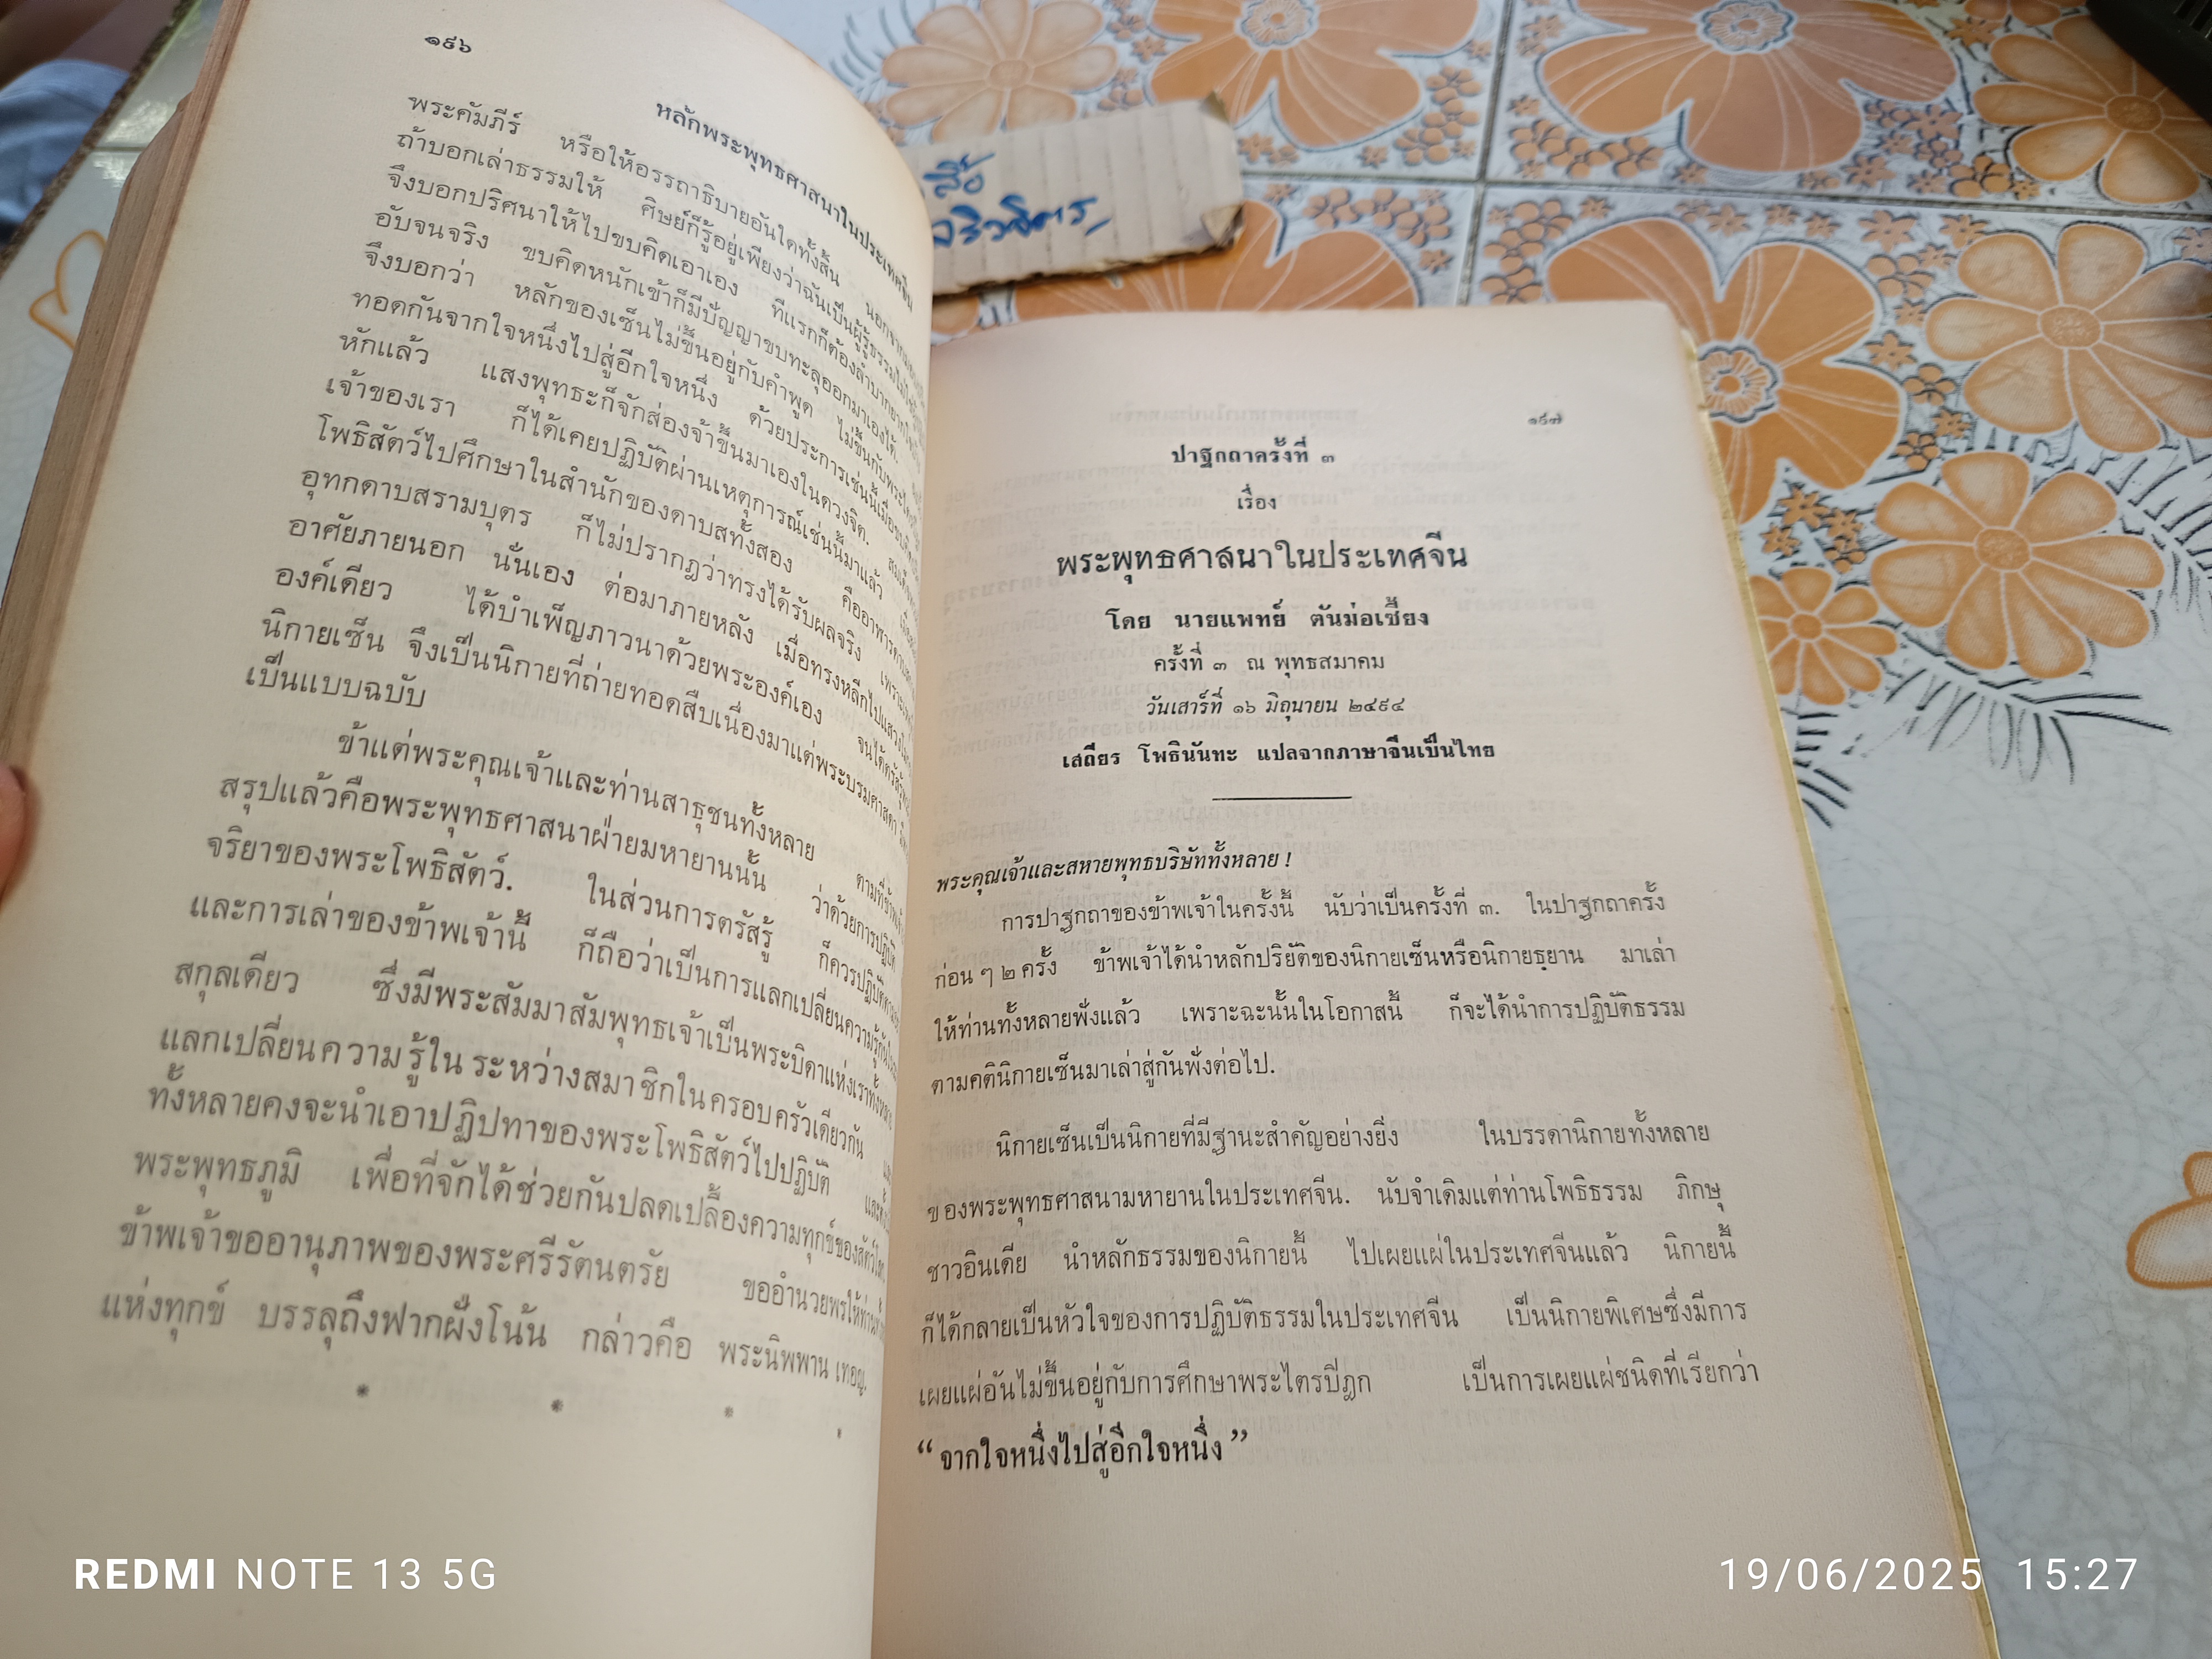 ๑๙๖
หลักพระพุทธศาสนาในประเทศจีน
พระคัมภีร์ หรือให้อรรถาธิบายอันใดทั้งสิ้น
ถ้าบอกเล่าธรรมให้ ศิษย์ก็รู้อยู่เพียงว่าฉันเป็นผู้รู้ธรรม
จึงบอกปริศนาให้ไปขบคิดเอาเอง ทีแรกก็ต้องลำบากยาก
อับจนจริง ขบคิดหนักเข้าก็มีปัญญาขบทะลุออกมาเองได้.
จึงบอกว่า หลักของเซ็นไม่ขึ้นอยู่กับคำพูด ไม่ขึ้นกับพระไตร
ทอดกันจากใจหนึ่งไปสู่อีกใจหนึ่ง ด้วยประการเช่นนี้เมื่อขบคิด
หักแล้ว แสงพุทธะก็จักส่องจ้าขึ้นมาเองในดวงจิต.
เจ้าของเรา ก็ได้เคยปฏิบัติผ่านเหตุการณ์เช่นนี้มาแล้ว
โพธิสัตว์ไปศึกษาในสำนักของดาบสทั้งสอง คืออาฬารดาบส
อุทกดาบสรามบุตร ก็ไม่ปรากฏว่าทรงได้รับผลจริง เพราะ
อาศัยภายนอก นั่นเอง ต่อมาภายหลัง เมื่อทรงหลีกไปแสวง
องค์เดียว ได้บำเพ็ญภาวนาด้วยพระองค์เอง จนได้ตรัสรู้
นิกายเซ็น จึงเป็นนิกายที่ถ่ายทอดสืบเนื่องมาแต่พระบรมศาสดา
เป็นแบบฉบับ
ข้าแต่พระคุณเจ้าและท่านสาธุชนทั้งหลาย ตามที่ข้าพเจ้า
สรุปแล้วคือพระพุทธศาสนาฝ่ายมหายานนั้น ว่าด้วยการปฏิบัติ
จริยาของพระโพธิสัตว์. ในส่วนการตรัสรู้ ก็ควรปฏิบัติตาม
และการเล่าของข้าพเจ้านี้ ก็ถือว่าเป็นการแลกเปลี่ยนความรู้กัน
สกุลเดียว ซึ่งมีพระสัมมาสัมพุทธเจ้าเป็นพระบิดาแห่งเราทั้งหลาย
แลกเปลี่ยนความรู้ในระหว่างสมาชิกในครอบครัวเดียวกัน
ทั้งหลายคงจะนำเอาปฏิปทาของพระโพธิสัตว์ไปปฏิบัติ
พระพุทธภูมิ เพื่อที่จักได้ช่วยกันปลดเปลื้องความทุกข์ของสัตว์โลก
ข้าพเจ้าขออานุภาพของพระศรีรัตนตรัย ขออำนวยพรให้ท่าน
แห่งทุกข์ บรรลุถึงฟากฝั่งโน้น กล่าวคือ พระนิพพาน เทอญ.
* * * *
สื้อ
๑๙๗
ปาฐกถาครั้งที่ ๓
เรื่อง
พระพุทธศาสนาในประเทศจีน
โดย นายแพทย์ ตันม่อเซี้ยง
ครั้งที่ ๓ ณ พุทธสมาคม
วันเสาร์ที่ ๑๖ มิถุนายน ๒๔๙๔
เสถียร โพธินันทะ แปลจากภาษาจีนเป็นไทย
พระคุณเจ้าและสหายพุทธบริษัททั้งหลาย !
การปาฐกถาของข้าพเจ้าในครั้งนี้ นับว่าเป็นครั้งที่ ๓. ในปาฐกถาครั้ง
ก่อน ๆ ๒ ครั้ง ข้าพเจ้าได้นำหลักปริยัติของนิกายเซ็นหรือนิกายธฺยาน มาเล่า
ให้ท่านทั้งหลายฟังแล้ว เพราะฉะนั้นในโอกาสนี้ ก็จะได้นำการปฏิบัติธรรม
ตามคตินิกายเซ็นมาเล่าสู่กันฟังต่อไป.
นิกายเซ็นเป็นนิกายที่มีฐานะสำคัญอย่างยิ่ง ในบรรดานิกายทั้งหลาย
ของพระพุทธศาสนามหายานในประเทศจีน. นับจำเดิมแต่ท่านโพธิธรรม ภิกษุ
ชาวอินเดีย นำหลักธรรมของนิกายนี้ ไปเผยแผ่ในประเทศจีนแล้ว นิกายนี้
ก็ได้กลายเป็นหัวใจของการปฏิบัติธรรมในประเทศจีน เป็นนิกายพิเศษซึ่งมีการ
เผยแผ่อันไม่ขึ้นอยู่กับการศึกษาพระไตรปิฎก เป็นการเผยแผ่ชนิดที่เรียกว่า
“ จากใจหนึ่งไปสู่อีกใจหนึ่ง ”
REDMI NOTE 13 5G
19/06/2025 15:27